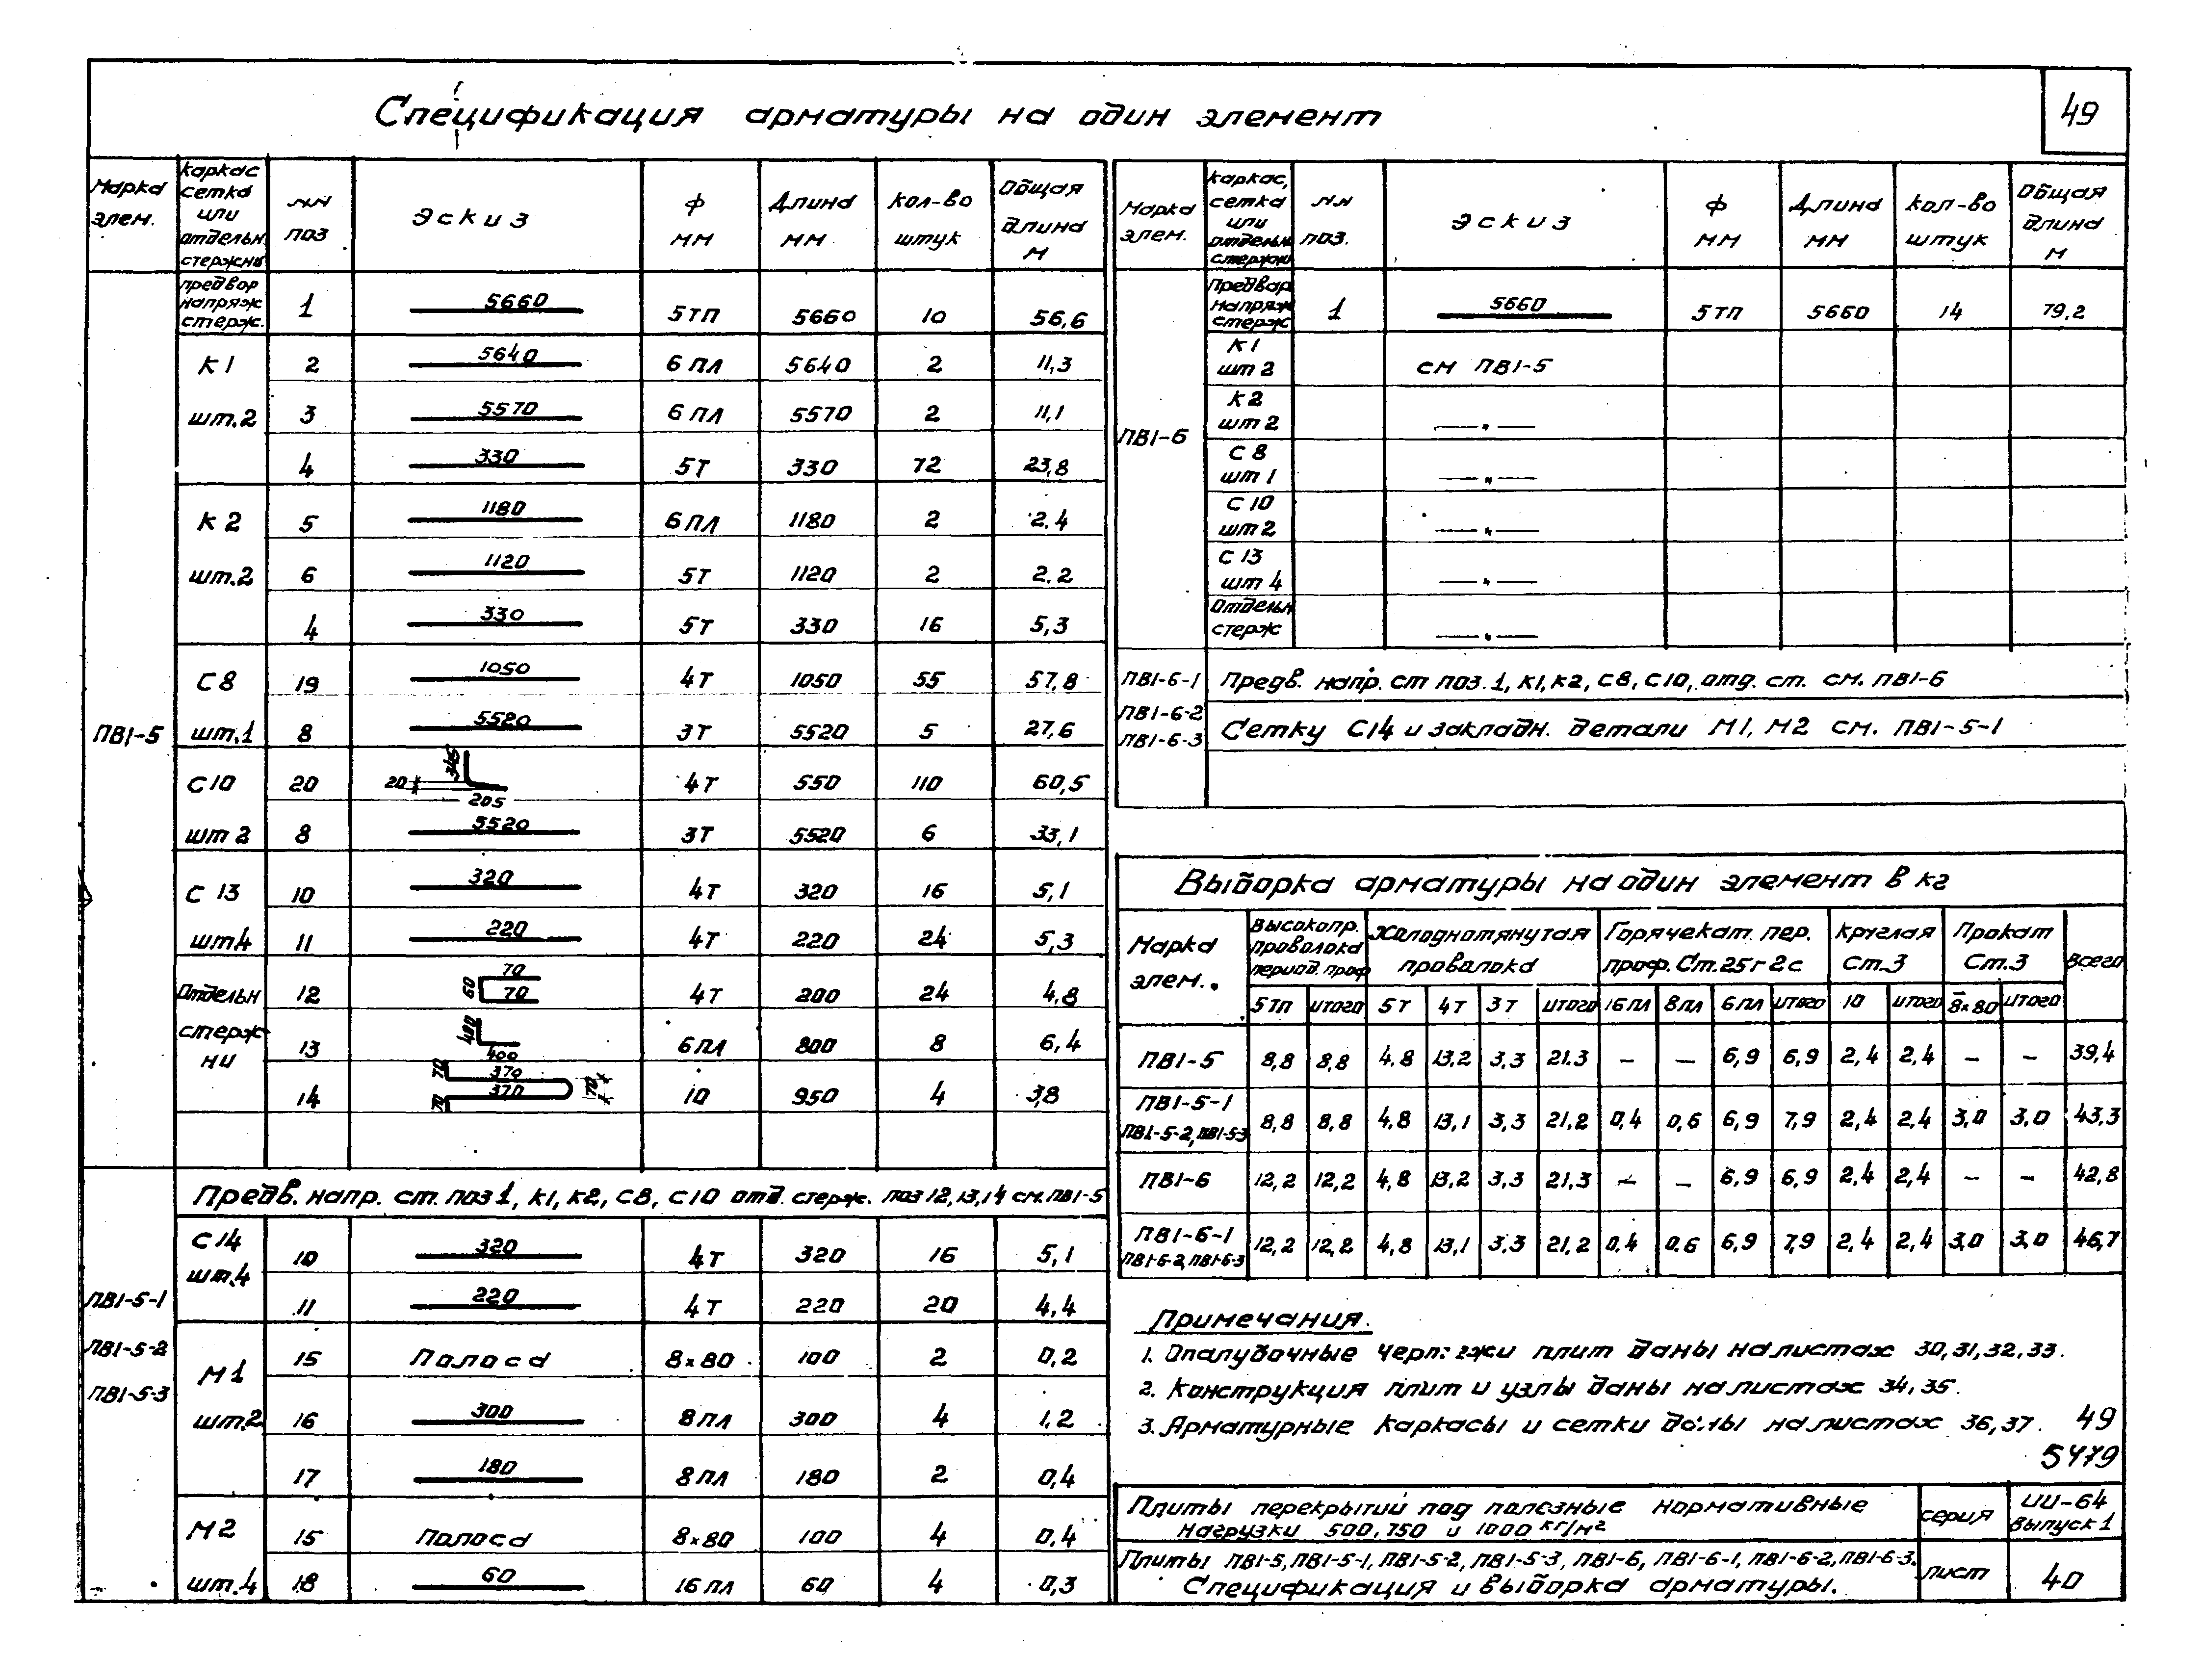 Спецификация арматуры на один элемент
49
Марка элем. | каркас сетка или отдельн. стержни | NN поз | Эскиз | ф мм | Длина мм | кол-во штук | Общая длина м
ПВ1-5
предвар напряж стерж. | 1 | 5660 | 5тп | 5660 | 10 | 56,6
К1 шт.2 | 2 | 5640 | 6пл | 5640 | 2 | 11,3
3 | 5570 | 6пл | 5570 | 2 | 11,1
4 | 330 | 5т | 330 | 72 | 23,8
К2 шт.2 | 5 | 1180 | 6пл | 1180 | 2 | 2.4
6 | 1120 | 5т | 1120 | 2 | 2.2
4 | 330 | 5т | 330 | 16 | 5,3
С8 шт.1 | 19 | 1050 | 4т | 1050 | 55 | 57,8
8 | 5520 | 3т | 5520 | 5 | 27,6
С10 шт 2 | 20 | 345 20 205 | 4т | 550 | 110 | 60,5
8 | 5520 | 3т | 5520 | 6 | 33,1
С13 шт4 | 10 | 320 | 4т | 320 | 16 | 5,1
11 | 220 | 4т | 220 | 24 | 5,3
Отдельн стержни | 12 | 70 60 70 | 4т | 200 | 24 | 4,8
13 | 400 400 | 6пл | 800 | 8 | 6,4
14 | 70 370 370 70 70 | 10 | 950 | 4 | 3,8
ПВ1-5-1
ПВ1-5-2
ПВ1-5-3
Предв. напр. ст. поз 1, К1, К2, С8, С10 отд. стерж. поз 12, 13, 14 см. ПВ1-5
С14 шт.4 | 10 | 320 | 4т | 320 | 16 | 5,1
11 | 220 | 4т | 220 | 20 | 4,4
М1 шт.2 | 15 | Полоса | 8×80 | 100 | 2 | 0,2
16 | 300 | 8пл | 300 | 4 | 1,2
17 | 180 | 8пл | 180 | 2 | 0,4
М2 шт.4 | 15 | Полоса | 8×80 | 100 | 4 | 0,4
18 | 60 | 16пл | 60 | 4 | 0,3
Марка элем. | каркас, сетка или отдельн стержни | NN поз. | Эскиз | ф мм | Длина мм | кол-во штук | Общая длина м
ПВ1-6
Предвар напряж стерж | 1 | 5660 | 5тп | 5660 | 14 | 79,2
К1 шт 2 | см ПВ1-5
К2 шт 2 | —"—
С8 шт 1 | —"—
С10 шт 2 | —"—
С13 шт 4 | —"—
Отдельн стерж | —"—
ПВ1-6-1 | Предв. напр. ст поз. 1, К1, К2, С8, С10, отд. ст. см. ПВ1-6
ПВ1-6-2
ПВ1-6-3 | Сетку С14 и закладн. детали М1, М2 см. ПВ1-5-1
Выборка арматуры на один элемент в кг
Марка элем. | Высокопр. проволока период. проф | Холоднотянутая проволока | Горячекат. пер. проф. Ст. 25г2с | Круглая ст.3 | Прокат Ст.3 | Всего
5тп | итого | 5т | 4т | 3т | итого | 16пл | 8пл | 6пл | итого | 10 | итого | 8×80 | итого
ПВ1-5 | 8,8 | 8,8 | 4.8 | 13,2 | 3,3 | 21.3 | – | – | 6,9 | 6,9 | 2,4 | 2,4 | – | – | 39,4
ПВ1-5-1 ПВ1-5-2, ПВ1-5-3 | 8,8 | 8,8 | 4,8 | 13,1 | 3,3 | 21,2 | 0,4 | 0,6 | 6,9 | 7,9 | 2,4 | 2,4 | 3,0 | 3,0 | 43,3
ПВ1-6 | 12,2 | 12,2 | 4,8 | 13,2 | 3,3 | 21,3 | – | – | 6,9 | 6,9 | 2,4 | 2,4 | – | – | 42,8
ПВ1-6-1 ПВ1-6-2, ПВ1-6-3 | 12,2 | 12,2 | 4,8 | 13,1 | 3,3 | 21,2 | 0,4 | 0,6 | 6,9 | 7,9 | 2,4 | 2,4 | 3,0 | 3,0 | 46,7
Примечания.
1. Опалубочные чертежи плит даны на листах 30, 31, 32, 33.
2. Конструкция плит и узлы даны на листах 34, 35.
3. Арматурные каркасы и сетки даны на листах 36, 37.
49
5479
Плиты перекрытий под полезные нормативные
нагрузки 500, 750 и 1000 кг/м²
серия
ИИ-64
выпуск 1
Плиты ПВ1-5, ПВ1-5-1, ПВ1-5-2, ПВ1-5-3, ПВ1-6, ПВ1-6-1, ПВ1-6-2, ПВ1-6-3.
Спецификация и выборка арматуры.
лист
40